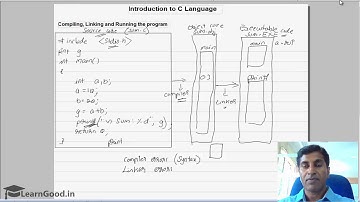 Introduction to C Language
Compiling, Linking and Running the program
Source code (sum.c)
# include <stdio.h>
int g
int main()
{
int a,b;
a=10;
b=20;
g = a+b;
printf("\n Sum: %d", g);
return 0;
}
object code
main
compiler
Linker
Executable code
sum.EXE
a.out
main
printf
Compiler errors (Syntax)
Linker errors
LearnGood.in